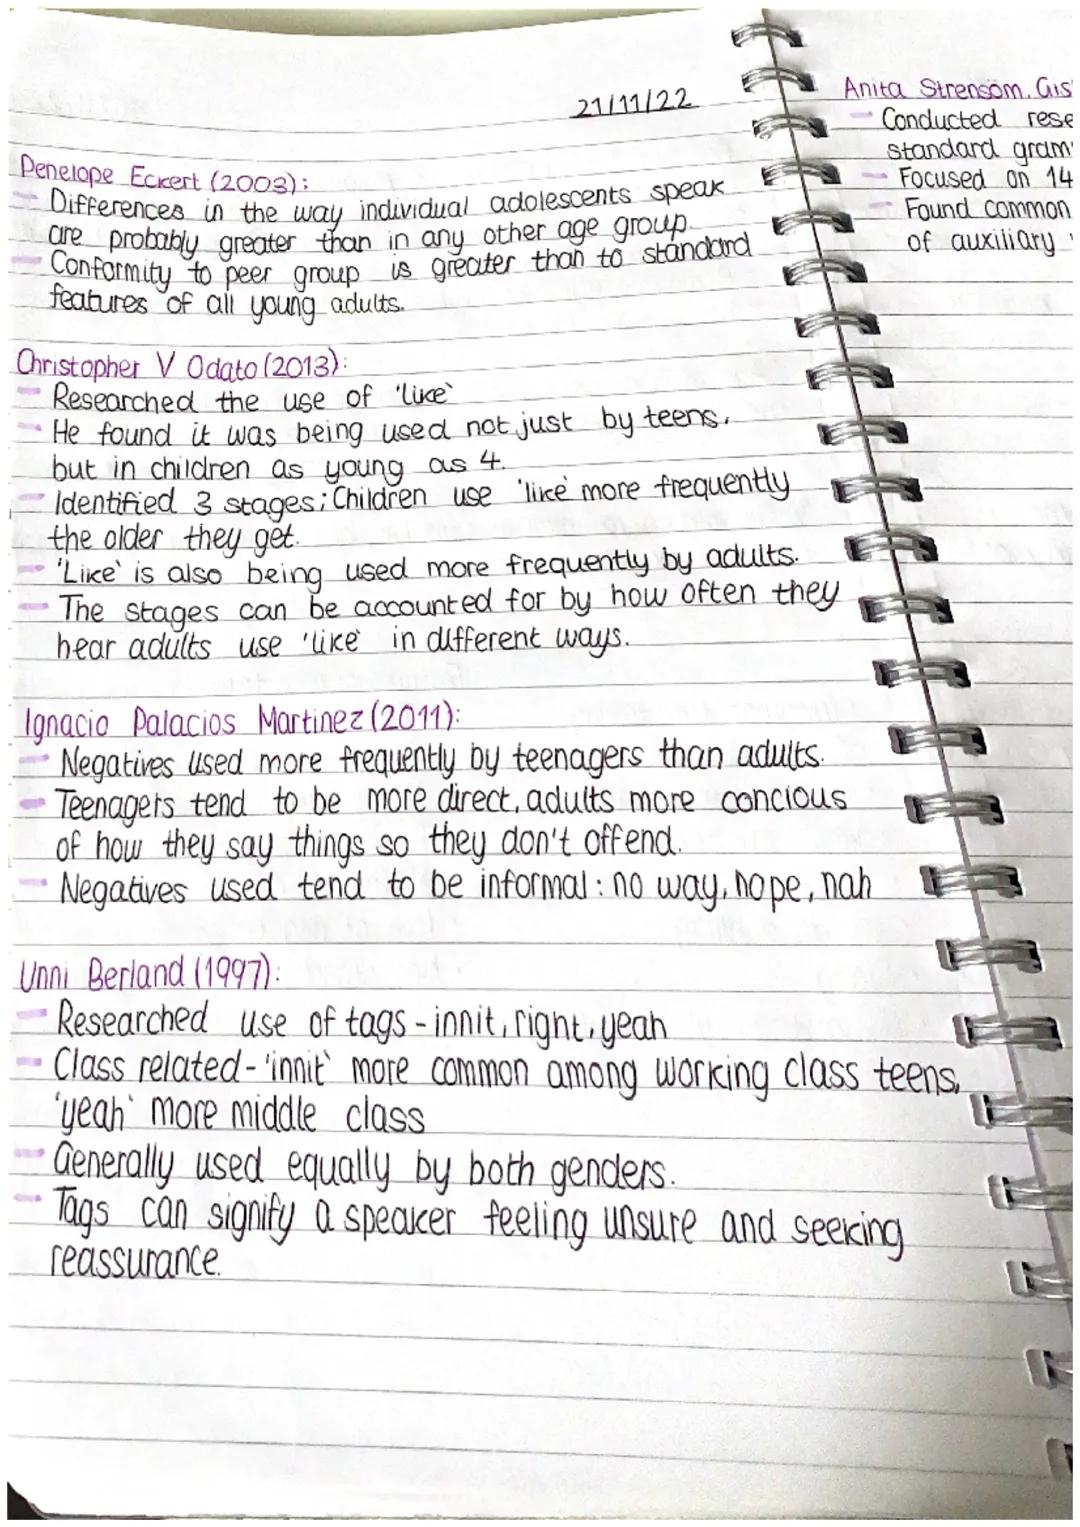 21/11/22
Penelope Eckert (2003):
- Differences in the way individual adolescents speak
are probably greater than in any other age group.
- Conformity to peer group is greater than to standard
features of all young adults.
Christopher V Odato (2013):
- Researched the use of 'like'
- He found it was being used not just by teens,
but in children as young as 4.
- Identified 3 stages; Children use 'like' more frequently
the older they get.
- 'Like' is also being used more frequently by adults.
- The stages can be accounted for by how often they
hear adults use 'like' in different ways.
Ignacio Palacios Martinez (2011):
- Negatives used more frequently by teenagers than adults.
- Teenagers tend to be more direct, adults more concious
of how they say things so they don't offend.
- Negatives used tend to be informal: no way, nope, nah
Unni Berland (1997):
- Researched use of tags - innit, right, yeah
- Class related - 'innit' more common among working class teens,
'yeah' more middle class
- Generally used equally by both genders.
- Tags can signify a speaker feeling unsure and seeking
reassurance.
Anita Strensöm, Gis
- Conducted rese
standard gram
- Focused on 14
- Found common
of auxiliary